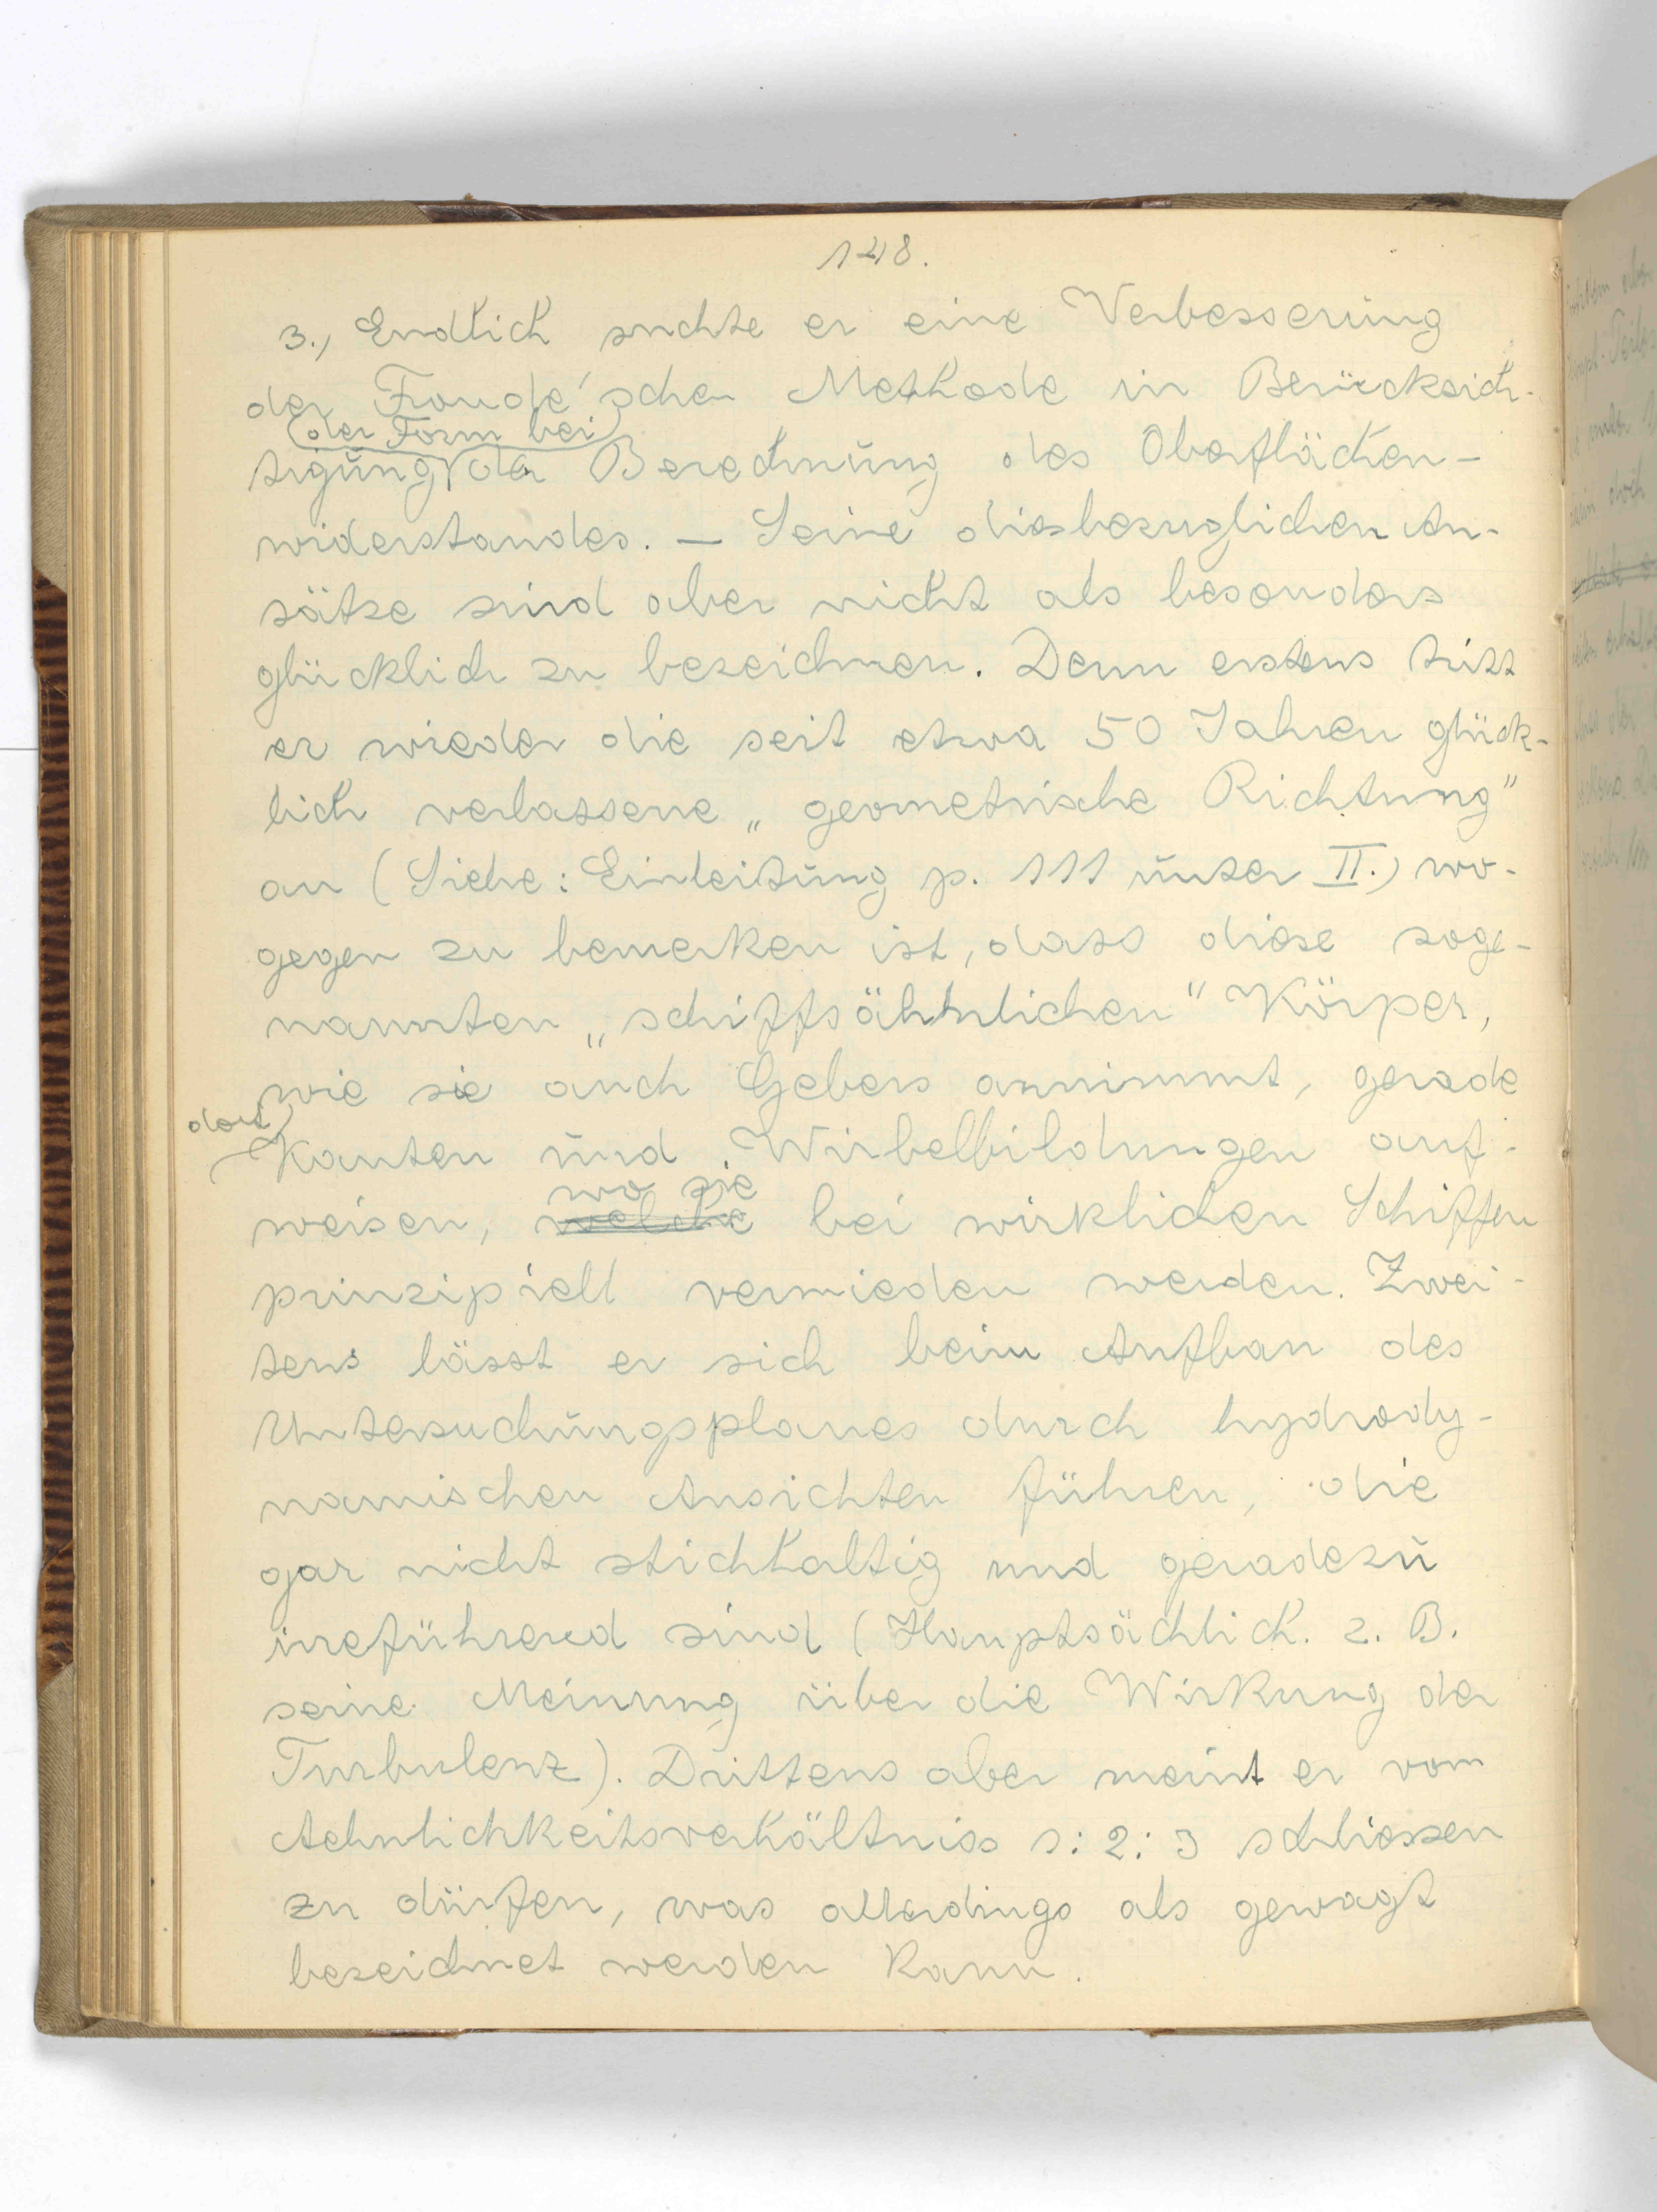 148.
3., Endlich suchte er eine Verbesserung
der Froude'schen Methode in Berücksich-
der Form bei
tigung der Berechnung des Oberflächen-
widerstandes. — Seine diesbezuglichen An-
sätze sind aber nicht als besonders
glücklich zu bezeichnen. Denn erstens tritt
er wieder die seit etwa 50 Jahren glück-
lich verlassene „geometrische Richtung"
an (Siehe: Einleitung p. 111 unter II.) wo-
gegen zu bemerken ist, dass diese soge-
nannten „schiffsähnlichen" Körper,
wie sie auch Gebers annimmt, gerade
dort
Kanten und Wirbelbildungen auf-
wo sie
weisen, welche bei wirklichen Schiffen
prinzipiell vermieden werden. Zwei-
tens lässt er sich beim Aufbau des
Untersuchungsplanes durch hydrody-
namischen Ansichten führen, die
gar nicht stichhaltig und geradezu
ireführend sind (Hauptsächlich. z. B.
seine Meinung über die Wirkung der
Turbulenz). Drittens aber meint er vom
Aehnlichkeitsverhältniss 1:2:3 schliessen
zu dürfen, was allerdings als gewagt
bezeichnet werden kann.